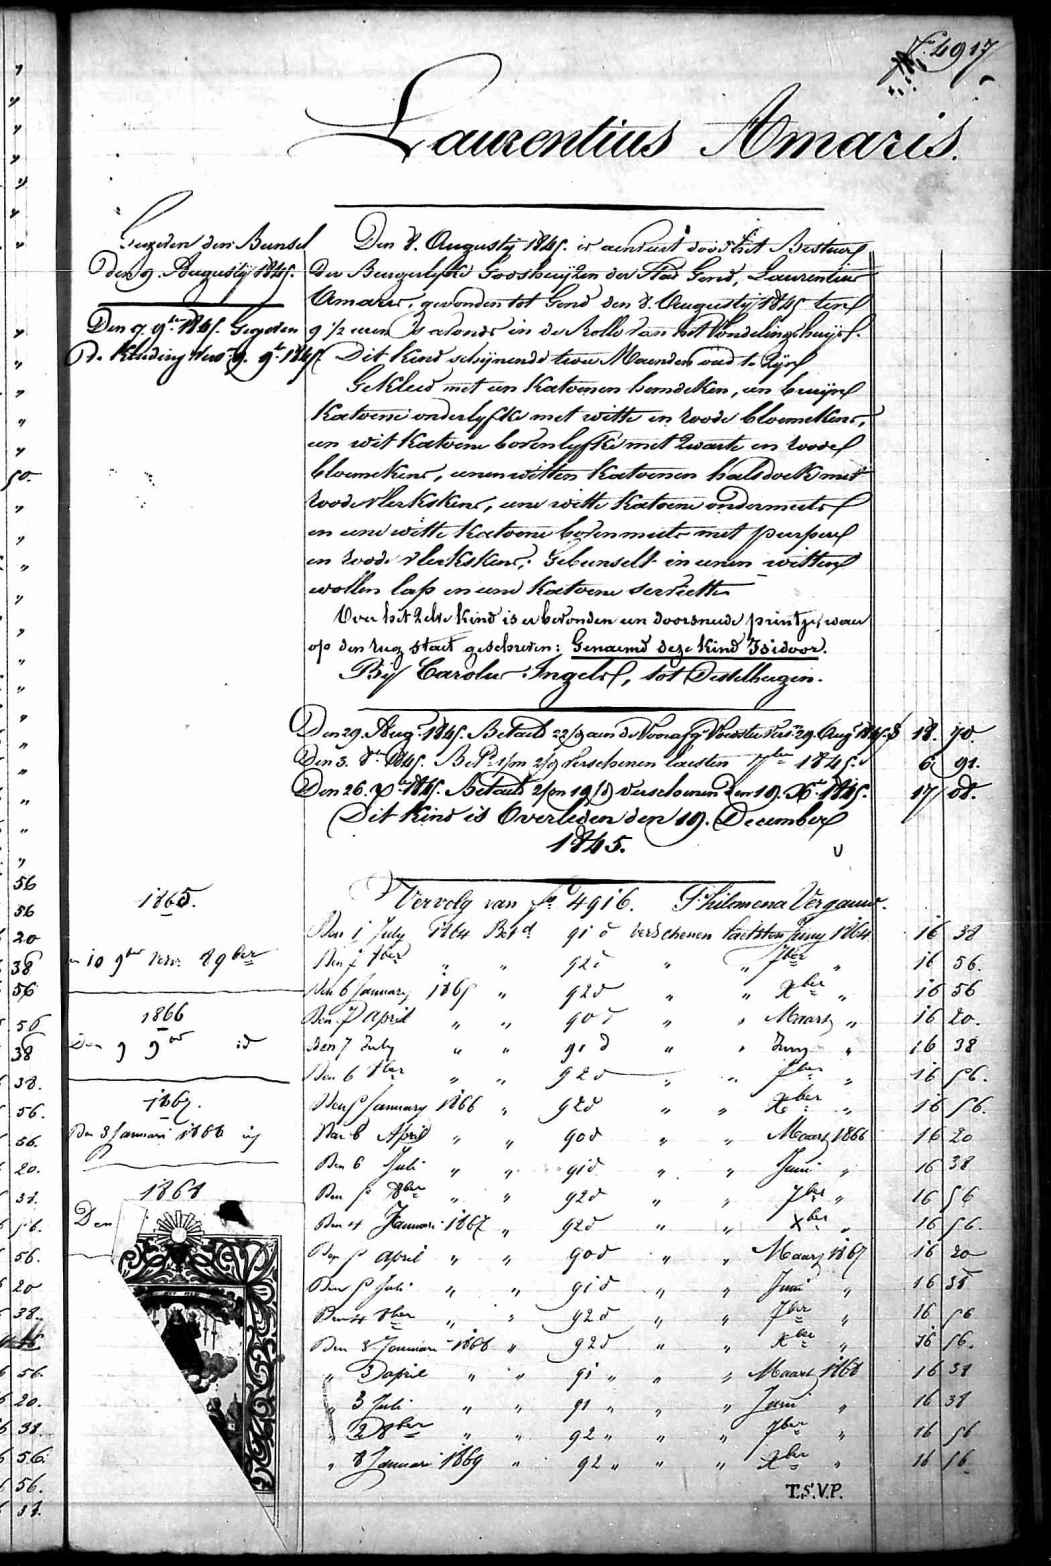 fo 4917
Laurentius Amaris.
Gegeven den Bunsel
Den 9. Augusty 1845.
Den 9. 9r 1845. Gegeven
De Kleeding No 9. 9r 1845
Den 8. Augusty 1845. is aenveert door het Bestuer
der Burgerlyke Godshuyzen der Stad Gend, Laurentius
Amaris, gevonden tot Gend den 8. Augusty 1845 ten
9 1/2 uren 's avonds in de Rolle van het Vondelingshuys.
Dit kind schynende twee Maenden oud te zyn
Gekleed met een katoenen hemdeken, een bruyn
katoene onderlyfke met witte en roode bloemekens,
een wit katoene bovenlyfke met zwarte en roode
bloemekens, eenen witten katoenen halsdoek met
roode vlekskens, eene witte katoene ondermuts
en eene witte katoene bovenmuts met purpere
en roode vlekskens; Gebunselt in eenen witten
wollen lap en eene katoene serviette
Over het zelve kind is er bevonden een doorsnede printje, waer
op den rug staet geschreven: Genaemd deze kind Isidoor.
By Carolus Ingels, tot Desselbergen.
Den 29. Aug. 1845. Betaeld 22/d aen de Voorafg. Voedster Verv. 29. Aug 1845. 18. 70.
Den 3. 8er 1845. Bet. 1/m 2/d verschenen laesten 7ber 1845. 6 91.
Den 26. Xr 1845. Betaeld 2/m 19/d verschenen den 19. Xr 1845. 17 08.
Dit Kind is Overleden den 19. December
1845.
Vervolg van fo 4916. Philomena Vergauwe.
1865.
Den 1 July 1864 Bet d 91 d verschenen laetsten Juny 1864 16 38
Den 7 8ber " " 92 d " " 7ber " 16 56.
en 10 9ber 89ber
Den 6 January 1865 " 92 d " " Xber " 16 56
1866
Den 7 April " " 90 d " " Maart " 16 20.
Den 9 9er id
Den 7 July " " 91 d " " Juny " 16 38
Den 6 8ber " " 92 d " " 7ber " 16 56.
1867.
Den 5 January 1866 " 92 d " " Xber " 16 56.
Den 3 Januari 1868 ig
Den 6 April " " 90 d " " Maart 1866 16 20
Den 6 Juli " " 91 d " " Juni " 16 38
1868
Den 5 8ber " " 92 d " " 7ber " 16 56
Den
Den 4 Januari 1867 " 92 d " " Xber " 16 56.
Den 5 april " " 90 d " " Maart 1867 16 20
Den 5 Juli " " 91 d " " Juni " 16 38
Den 4 8ber " " 92 d " " 7ber " 16 56
Den 3 Januari 1868 " 92 d " " Xber " 16 56.
" 3 april " " 91 " " " Maart 1868 16 38
" 3 Juli " " 91 " " " Juni " 16 38
" 2 8ber " " 92 " " " 7ber " 16 56
" 8 Januari 1869 " 92 " " " Xber " 16 56
T.S.V.P.
50.
56
56
20
38
56
56
38
38.
56.
56.
20.
38.
56.
56.
20
38.
56.
20.
38.
56.
56.
38.